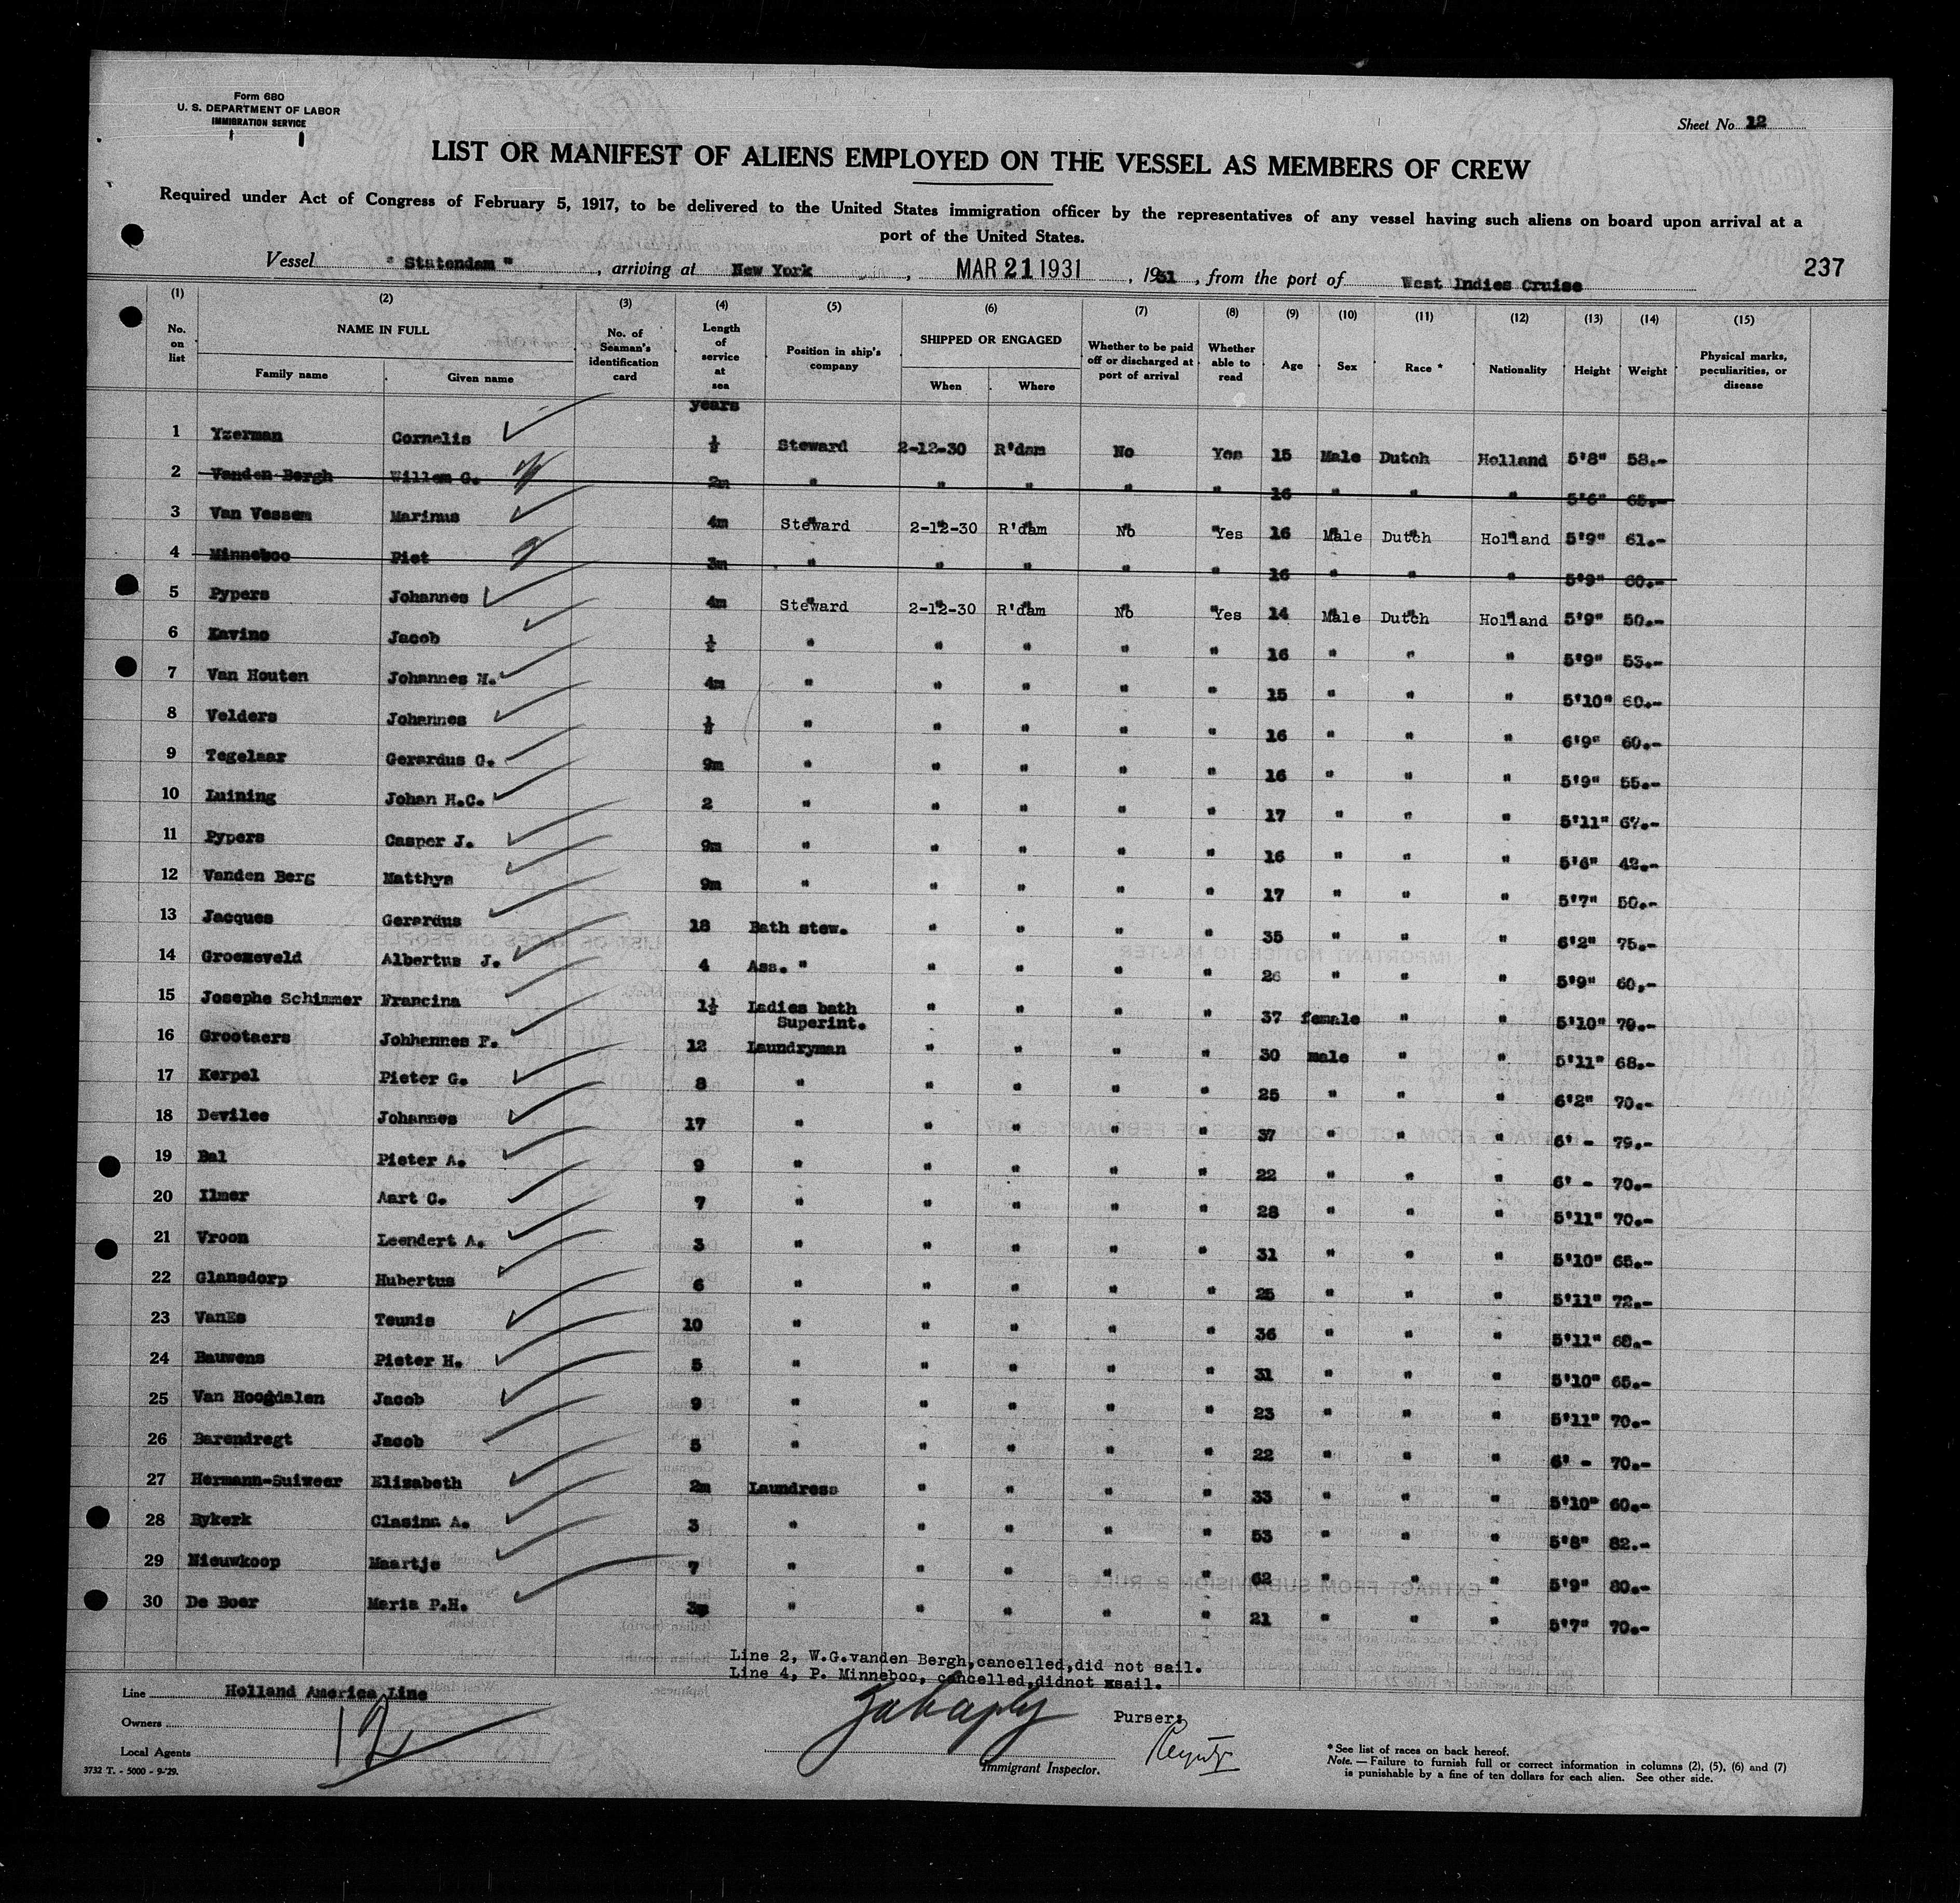 Form 680
U. S. DEPARTMENT OF LABOR
IMMIGRATION SERVICE
Sheet No. 12
LIST OR MANIFEST OF ALIENS EMPLOYED ON THE VESSEL AS MEMBERS OF CREW
Required under Act of Congress of February 5, 1917, to be delivered to the United States immigration officer by the representatives of any vessel having such aliens on board upon arrival at a
port of the United States.
Vessel "Statendam", arriving at New York, MAR 21 1931, 1931, from the port of West Indies Cruise
237
(1) (2) (3) (4) (5) (6) (7) (8) (9) (10) (11) (12) (13) (14) (15)
No. on list NAME IN FULL Family name Given name No. of Seaman's identification card Length of service at sea Position in ship's company SHIPPED OR ENGAGED When Where Whether to be paid off or discharged at port of arrival Whether able to read Age Sex Race * Nationality Height Weight Physical marks, peculiarities, or disease
years
1 Yzerman Cornelis ½ Steward 2-12-30 R'dam No Yes 15 Male Dutch Holland 5'8" 58.-
2 Vanden Bergh Willem G. 2m " " " " " 16 " " " 5'6" 65.-
3 Van Vessem Marinus 4m Steward 2-12-30 R'dam No Yes 16 Male Dutch Holland 5'9" 61.-
4 Minneboo Piet 3m " " " " " 16 " " " 5'9" 60.-
5 Pypers Johannes 4m Steward 2-12-30 R'dam No Yes 14 Male Dutch Holland 5'9" 50.-
6 Kavino Jacob ½ " " " " " 16 " " " 5'9" 53.-
7 Van Houten Johannes H. 4m " " " " " 15 " " " 5'10" 60.-
8 Velders Johannes ½ " " " " " 16 " " " 6'9" 60.-
9 Tegelaar Gerardus C. 9m " " " " " 16 " " " 5'9" 55.-
10 Luining Johan H.C. 2 " " " " " 17 " " " 5'11" 67.-
11 Pypers Casper J. 9m " " " " " 16 " " " 5'6" 42.-
12 Vanden Berg Matthys 9m " " " " " 17 " " " 5'7" 50.-
13 Jacques Gerardus 18 Bath stew. " " " " 35 " " " 6'2" 75.-
14 Groeneveld Albertus J. 4 Ass. " " " " " 26 " " " 5'9" 60,-
15 Josephe Schimmer Francina 1½ Ladies bath " " " " 37 female " " 5'10" 70.-
Superint.
16 Grootaers Johhennes F. 12 Laundryman " " " " 30 male " " 5'11" 68.-
17 Kerpel Pieter G. 8 " " " " " 25 " " " 6'2" 70.-
18 Devilee Johannes 17 " " " " " 37 " " " 6' - 79.-
19 Bal Pieter A. 9 " " " " " 22 " " " 6' - 70.-
20 Ilmer Aart C. 7 " " " " " 28 " " " 5'11" 70.-
21 Vroon Leendert A. 3 " " " " " 31 " " " 5'10" 65.-
22 Glansdorp Hubertus 6 " " " " " 25 " " " 5'11" 72.-
23 VanEs Teunis 10 " " " " " 36 " " " 5'11" 68.-
24 Bauwens Pieter H. 5 " " " " " 31 " " " 5'10" 65.-
25 Van Hoogdalen Jacob 9 " " " " " 23 " " " 5'11" 70.-
26 Barendregt Jacob 5 " " " " " 22 " " " 6' - 70.-
27 Hermann-Suiweer Elizabeth 2m Laundress " " " " 33 " " " 5'10" 60.-
28 Bykerk Clasina A. 3 " " " " " 53 " " " 5'8" 82.-
29 Nieuwkoop Maartje 7 " " " " " 62 " " " 5'9" 80.-
30 De Boer Maria P.H. 3m " " " " " 21 " " " 5'7" 70.-
Line 2, W.G.vanden Bergh,cancelled,did not sail.
Line 4, P. Minneboo, cancelled,didnot xsail.
Line Holland America Line
Owners
12
Local Agents
Purser:
Immigrant Inspector.
3732 T. - 5000 - 9-'29.
* See list of races on back hereof.
Note. — Failure to furnish full or correct information in columns (2), (5), (6) and (7)
is punishable by a fine of ten dollars for each alien. See other side.